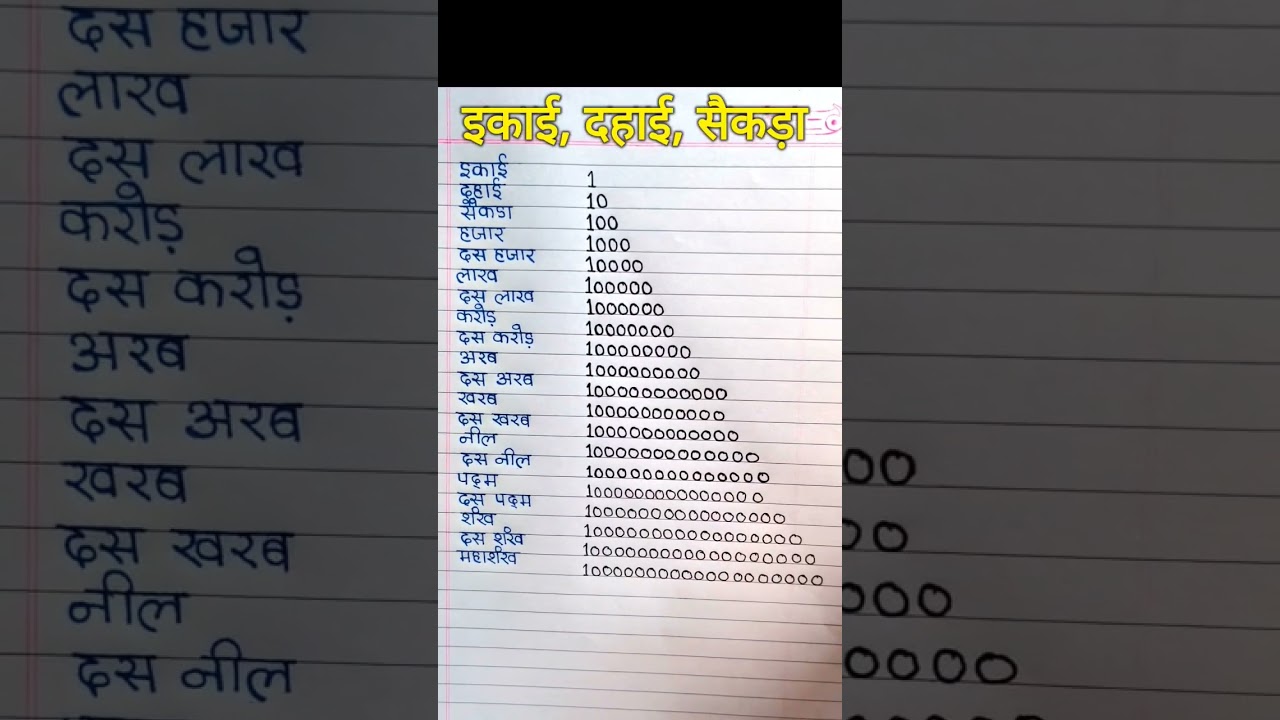 दस हजार
लाख
दस लाख
करोड़
दस करोड़
अरब
दस अरब
खरब
दस खरब
नील
दस नील
इकाई, दहाई, सैकड़ा
इकाई 1
दहाई 10
सैकडा 100
हजार 1000
दस हजार 10000
लाख 100000
दस लाख 1000000
करोड़ 10000000
दस करोड़ 100000000
अरब 1000000000
दस अरब 100000000000
खरब 100000000000
दस खरब 1000000000000
नील 10000000000000
दस नील 100000000000000
पद्म 1000000000000000
दस पद्म 10000000000000000
शंख 100000000000000000
दस शंख 1000000000000000000
महाशंख 10000000000000000000
00
00
000
0000